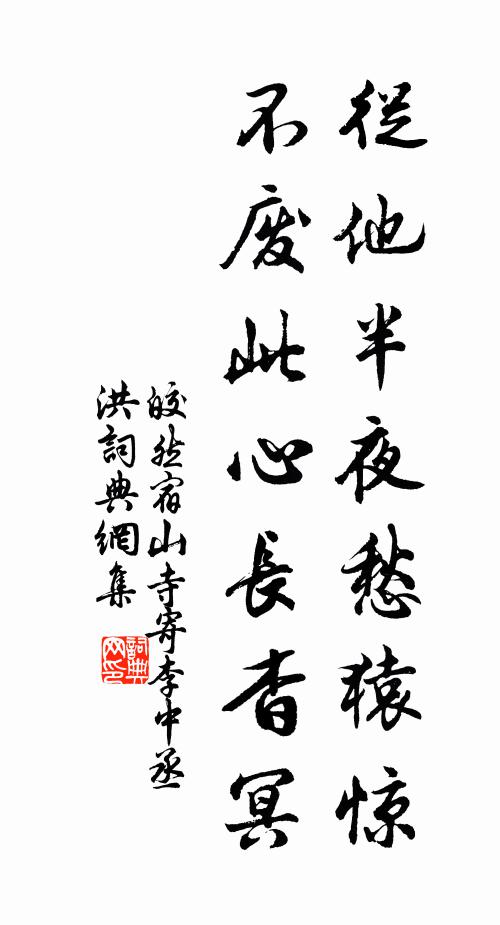 從他半夜愁猿惊
不废此心長杳冥
皎然宿山寺寄李中丞
洪詞典網集
詞典
网印